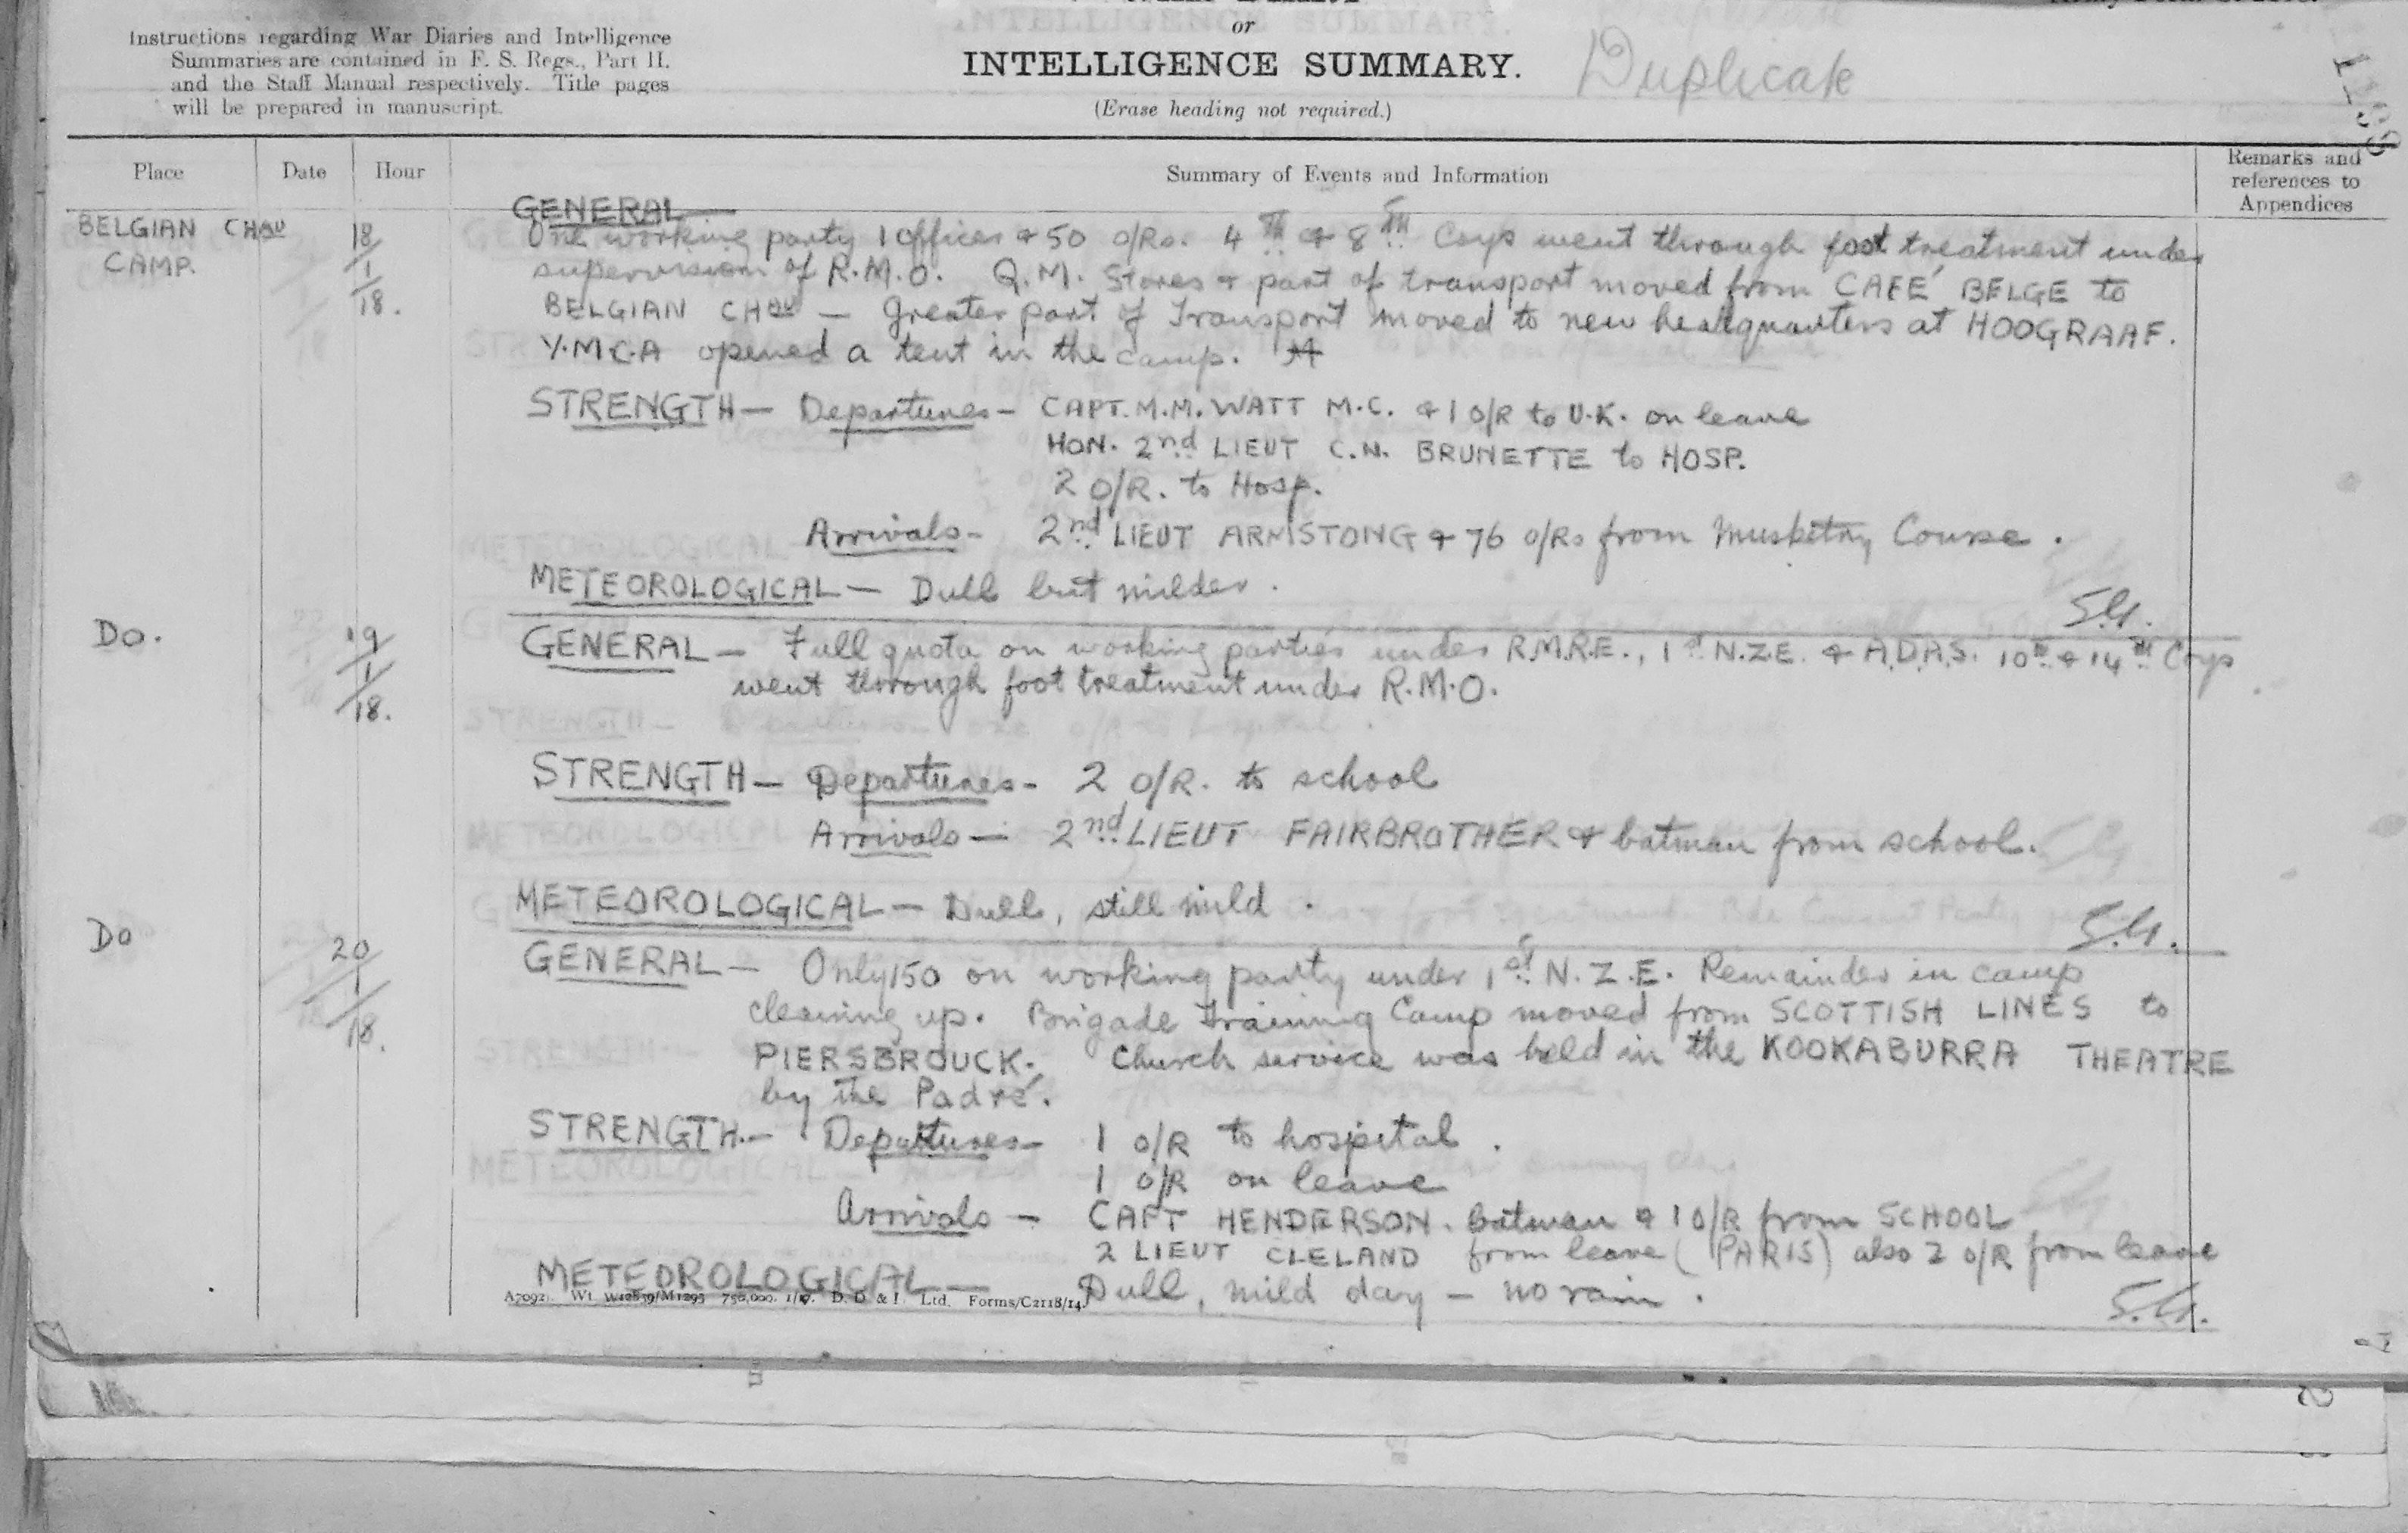 Instructions regarding War Diaries and Intelligence
Summaries are contained in F. S. Regs., Part II.
and the Staff Manual respectively. Title pages
will be prepared in manuscript.
or
INTELLIGENCE SUMMARY.
(Erase heading not required.)
Duplicate
Place
Date
Hour
Summary of Events and Information
Remarks and
references to
Appendices
BELGIAN CHAU
CAMP.
18/1/18.
GENERAL—
One working party 1 officer & 50 o/Rs. 4TH & 8TH Coys went through foot treatment under
supervision of R.M.O. Q.M. Stores & part of transport moved from CAFÉ BELGE to
BELGIAN CHAU — Greater part of Transport moved to new headquarters at HOOGRAAF.
Y.M.C.A opened a tent in the camp.
STRENGTH — Departures — CAPT. M.M. WATT M.C. & 1 O/R to U.K. on leave
HON. 2nd LIEUT C.N. BRUNETTE to HOSP.
2 O/R. to Hosp.
Arrivals — 2nd LIEUT ARMSTONG & 76 o/Rs from Musketry Course.
METEOROLOGICAL — Dull but milder.
S.G.
Do.
19/1/18.
GENERAL — Full quota on working parties under R.M.R.E., 1st N.Z.E. & A.D.A.S. 10TH & 14TH Coys
went through foot treatment under R.M.O.
STRENGTH — Departures — 2 O/R. to school
Arrivals — 2nd LIEUT FAIRBROTHER & batman from school.
METEOROLOGICAL — Dull, still mild.
S.G.
Do
20/1/18.
GENERAL — Only 150 on working party under 1st N.Z.E. Remainder in camp
cleaning up. Brigade Training Camp moved from SCOTTISH LINES to
PIERSBROUCK. Church service was held in the KOOKABURRA THEATRE
by the Padré.
STRENGTH. — Departures — 1 O/R to hospital.
1 O/R on leave
Arrivals — CAPT HENDERSON. batman & 1 O/R from SCHOOL
2 LIEUT CLELAND from leave (PARIS) also 2 O/R from leave
METEOROLOGICAL — Dull, mild day — no rain.
S.G.
A7092. Wt. W12839/M1293 750,000. 1/17. D. D & L Ltd. Forms/C2118/14.